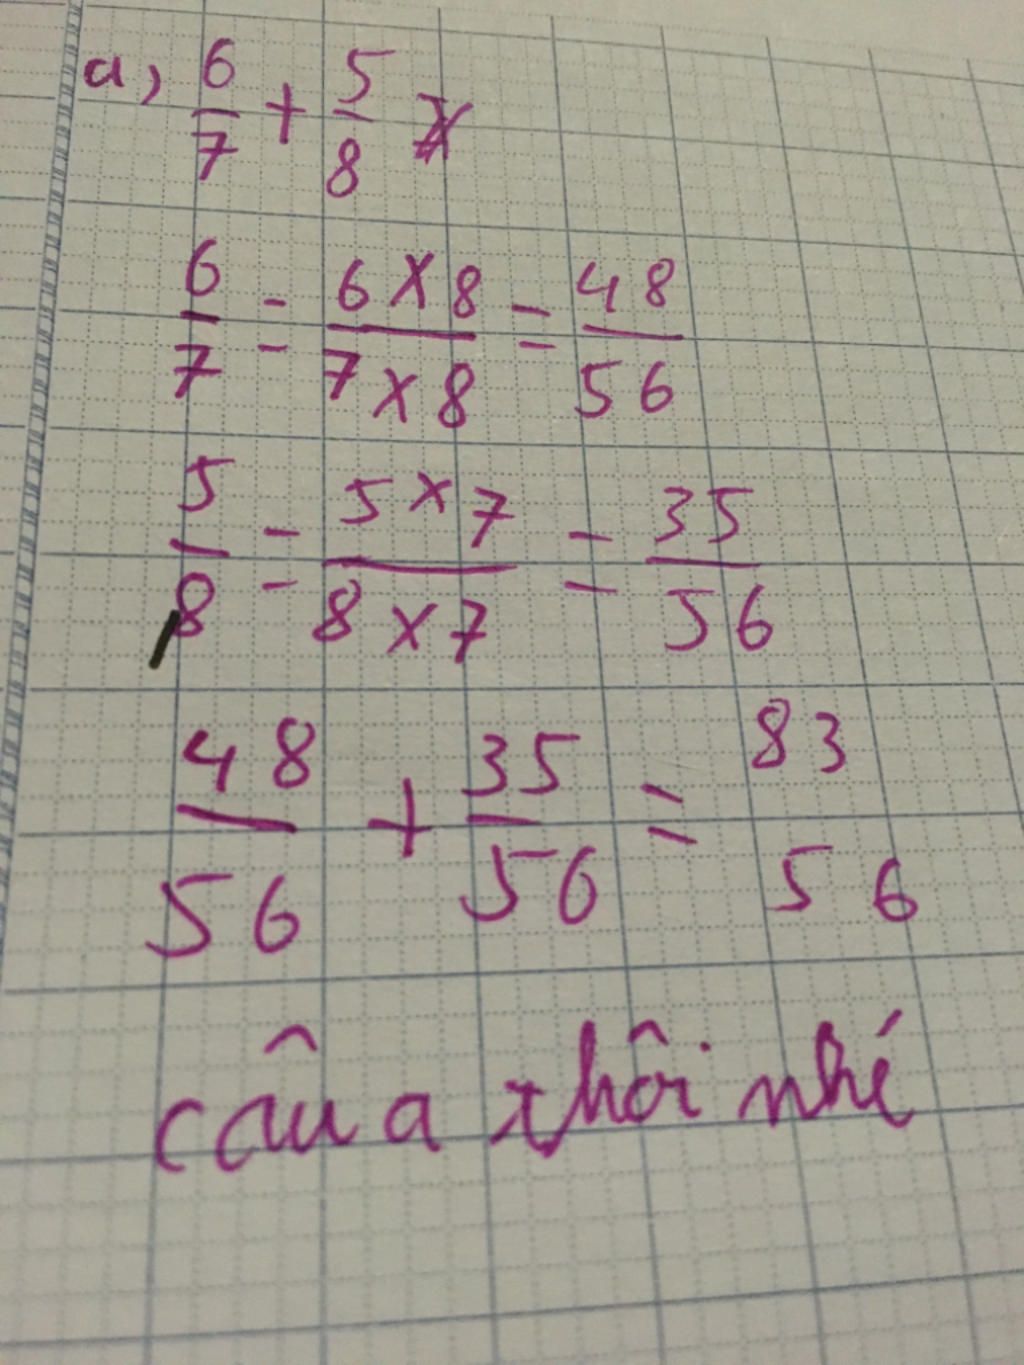 a, 6/7 + 5/8
6/7 = 6 x 8 / 7 x 8 = 48/56
5/8 = 5 x 7 / 8 x 7 = 35/56
48/56 + 35/56 = 83 56
câu a thôi nhé